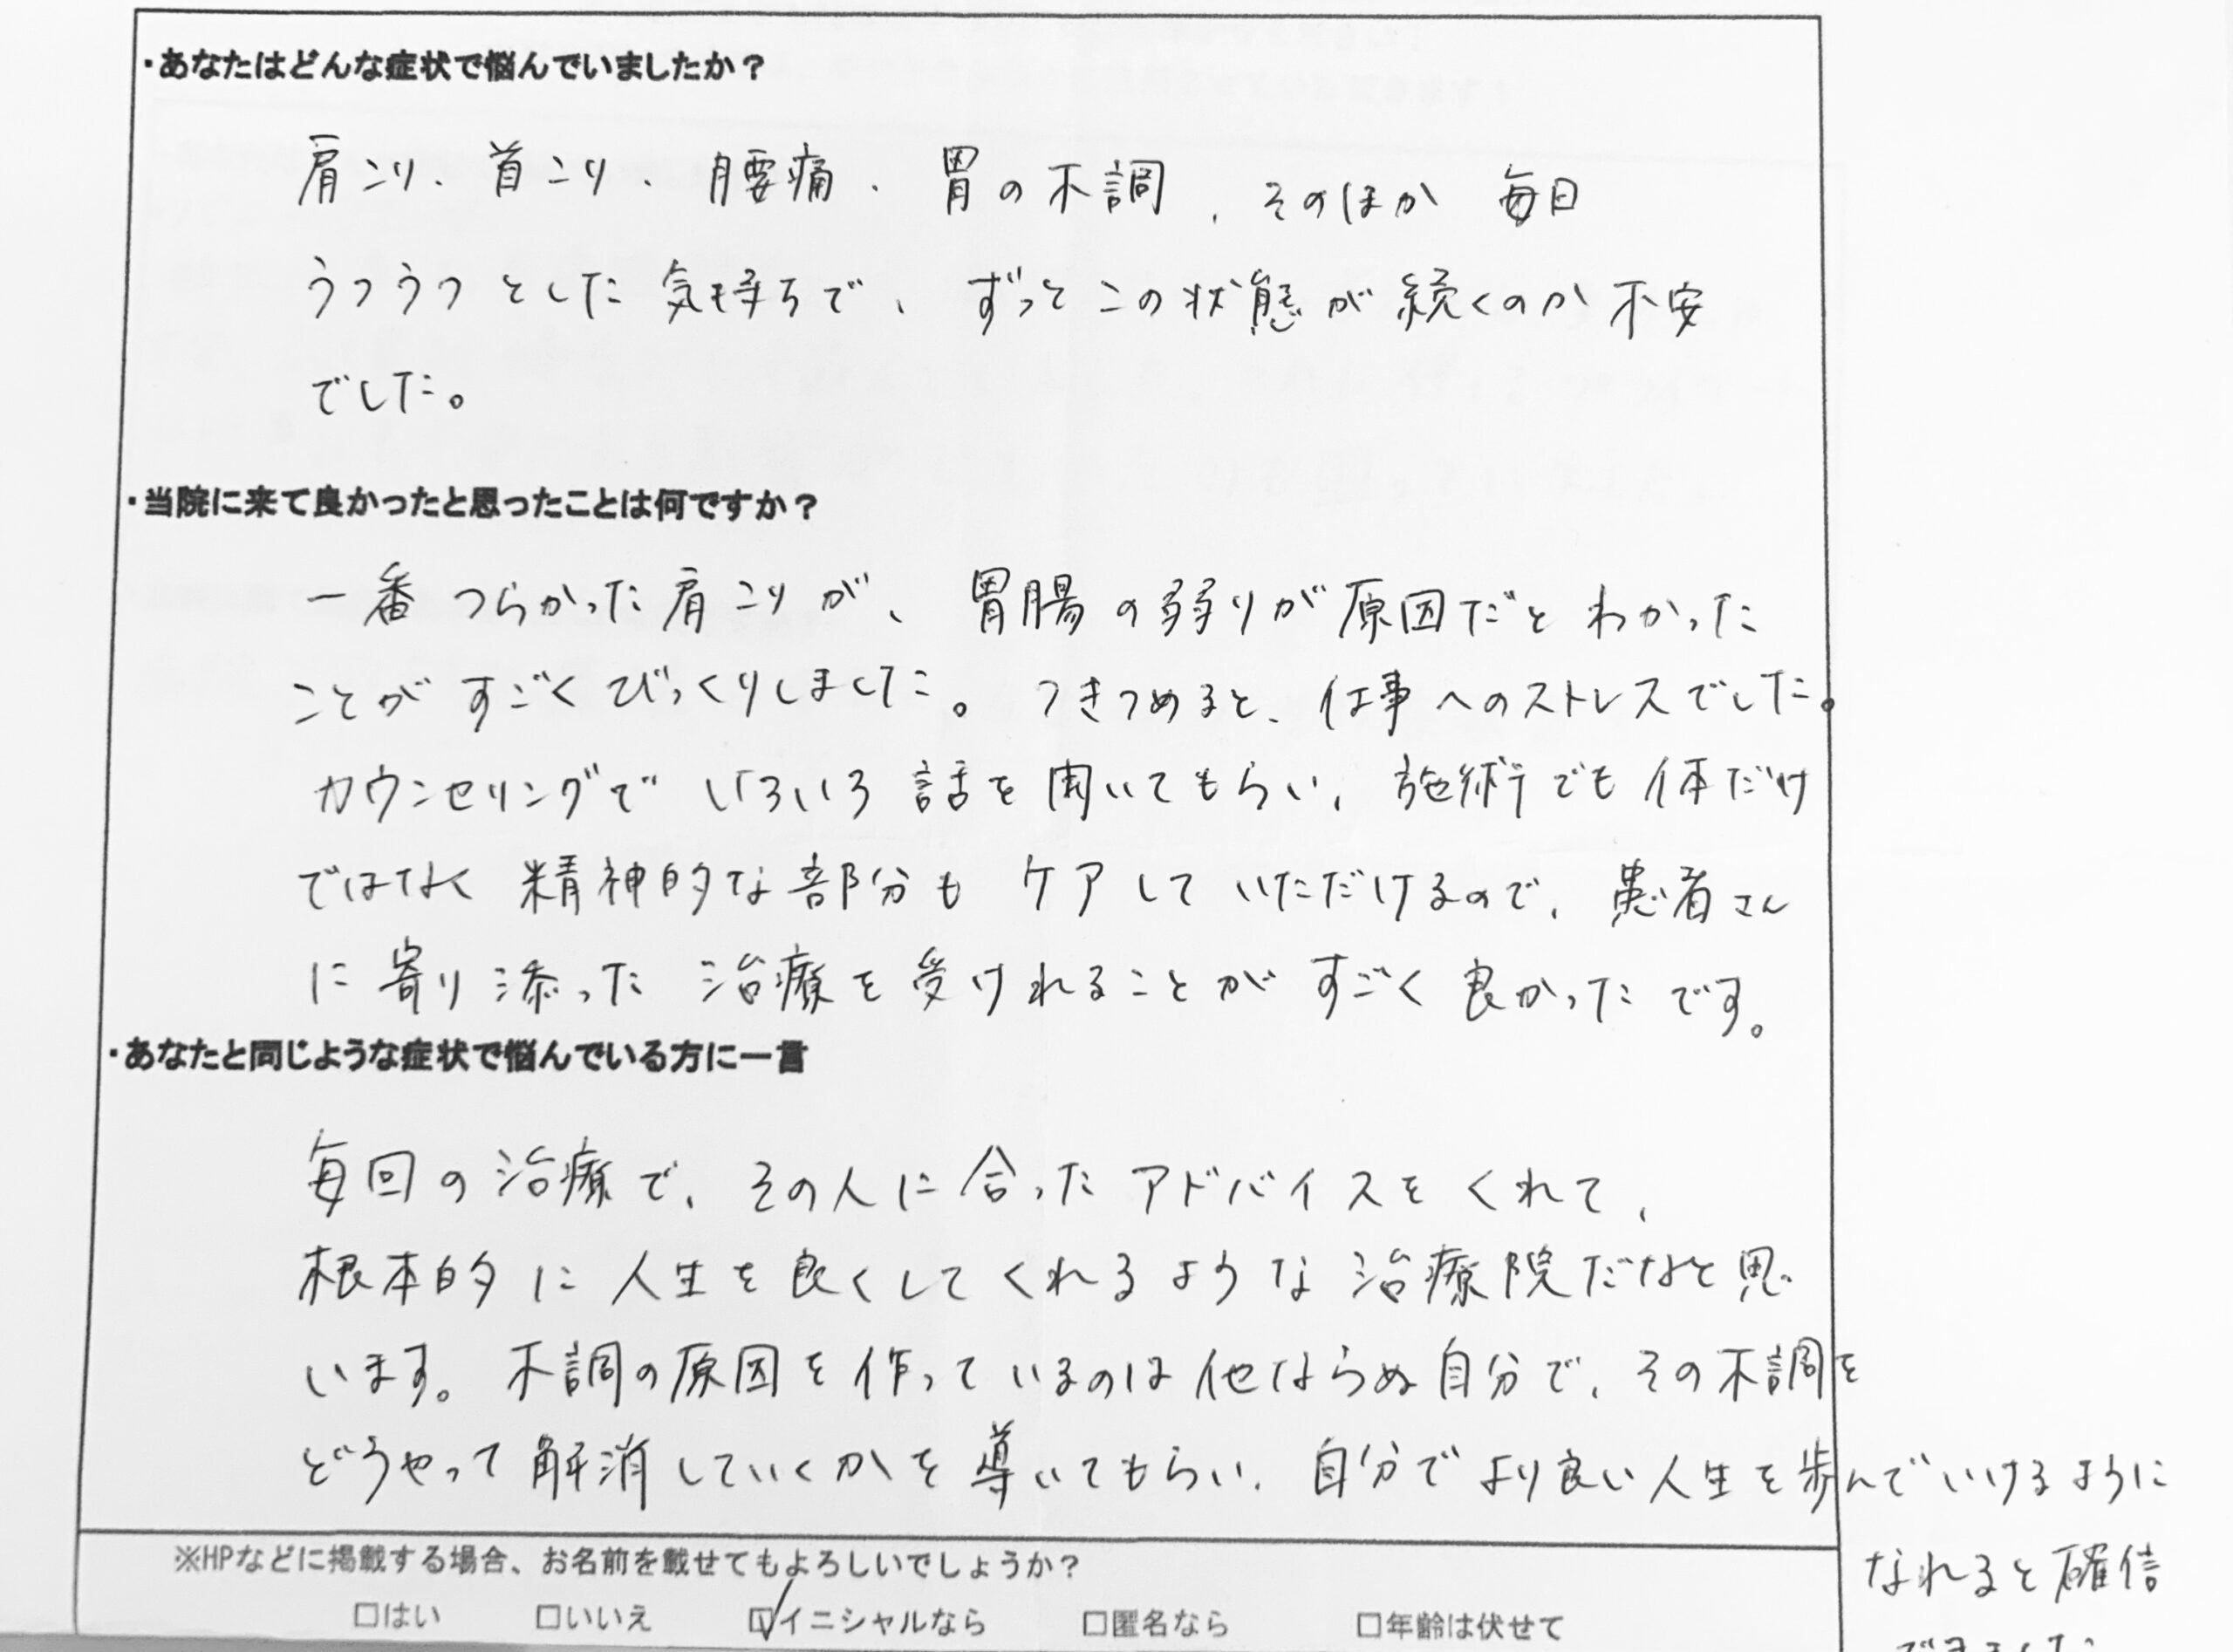 ・あなたはどんな症状で悩んでいましたか？
肩こり、首こり、腰痛、胃の不調、そのほか 毎日
うつうつとした気持ちで、ずっとこの状態が続くのか不安
でした。
・当院に来て良かったと思ったことは何ですか？
一番つらかった肩こりが、胃腸の弱りが原因だとわかった
ことがすごくびっくりしました。つきつめると、仕事へのストレスでした。
カウンセリングでいろいろ話を聞いてもらい、施術でも体だけ
ではなく精神的な部分もケアしていただけるので、患者さん
に寄り添った治療を受けれることがすごく良かったです。
・あなたと同じような症状で悩んでいる方に一言
毎回の治療で、その人に合ったアドバイスをくれて、
根本的に人生を良くしてくれるような治療院だなと思
います。不調の原因を作っているのは他ならぬ自分で、その不調を
どうやって解消していくかを導いてもらい、自分でより良い人生を歩んでいけるように
なれると確信
できました
※HPなどに掲載する場合、お名前を載せてもよろしいでしょうか？
□はい □いいえ ☑イニシャルなら □匿名なら □年齢は伏せて